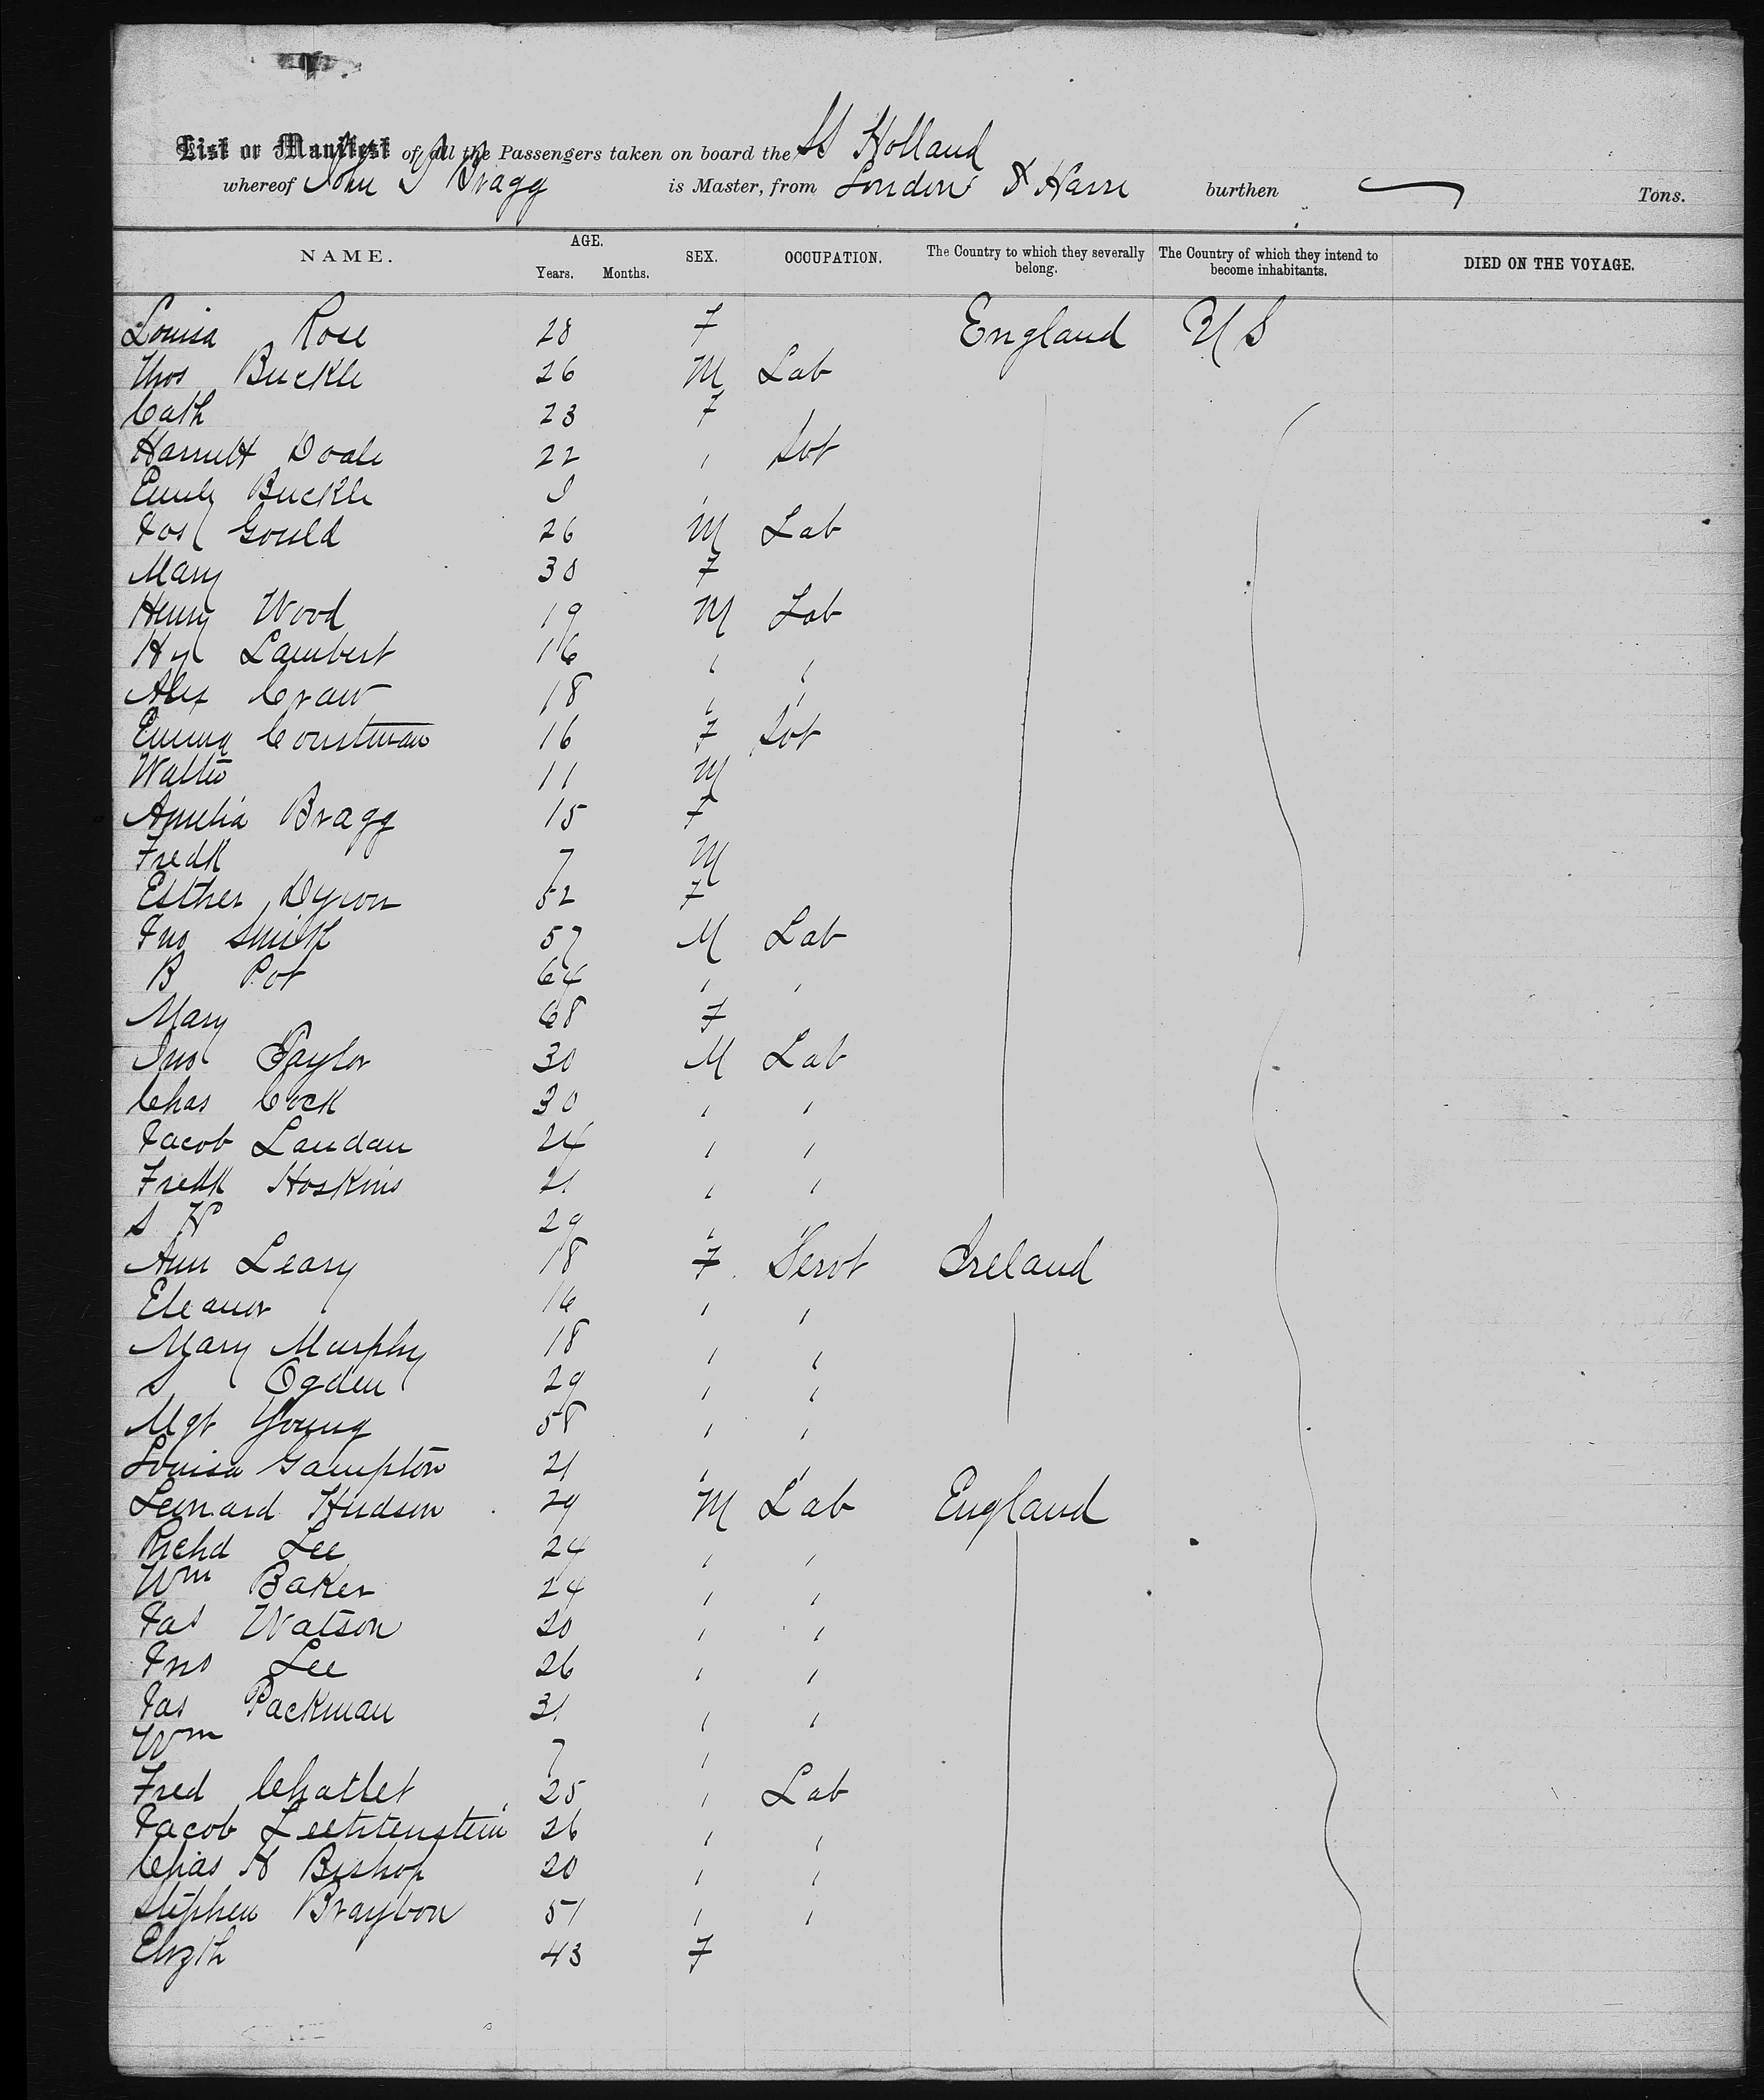 List or Manifest of all the Passengers taken on board the SS Holland
whereof John S Bragg is Master, from London & Havre burthen Tons.
NAME. AGE. Years. Months. SEX. OCCUPATION. The Country to which they severally belong. The Country of which they intend to become inhabitants. DIED ON THE VOYAGE.
Louisa Rose 28 F England U S
Thos Buckle 26 M Lab
Cath 23 F
Harriett Doale 22 " Svt
Emily Buckle
Jos Gould 26 M Lab
Mary 30 F
Henry Wood 19 M Lab
Hy Lambert 16 " "
Alex Craw 18 " "
Emma Courtman 16 F Svt
Walter 11 M
Amelia Bragg 15 F
Fredk 7 M
Esther Dyson 52 F
Jno Smith 57 M Lab
B Pot 64 " "
Mary 68 F
Jno Taylor 30 M Lab
Chas Cock 30 " "
Jacob Landau 24 " "
Fredk Hoskins 21 " "
S H 29 " "
Ann Leary 18 F Servt Ireland
Eleanor 16 " "
Mary Murphy 18 " "
S Ogden 29 " "
Mgt Young 58 " "
Louisa Gampton 21 " "
Leonard Hudson 29 M Lab England
Richd Lee 24 " "
Wm Baker 24 " "
Jas Watson 20 " "
Jno Lee 26 " "
Jas Packman 31 " "
Wm 7 "
Fred Chatlet 25 " Lab
Jacob Leehtenstein 26 " "
Chas H Bishop 20 " "
Stephen Braybon 51 " "
Elizth 43 F